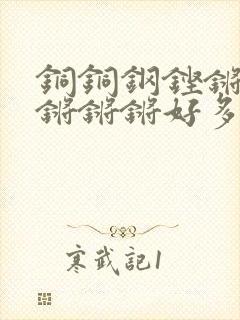 銅銅鋼鏗鏘
鏘鏘鏘好多
寒武記1